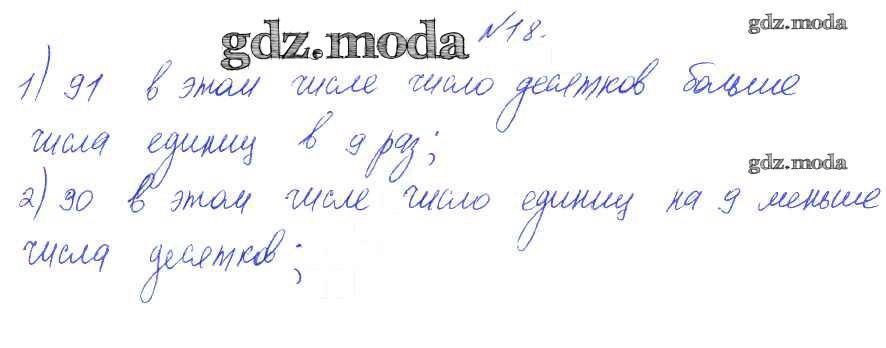 gdz.moda №18. gdz.moda
1) 91 в этом числе число десятков больше
числа единиц в 9 раз;
gdz.moda
2) 90 в этом числе число единиц на 9 меньше
числа десятков;